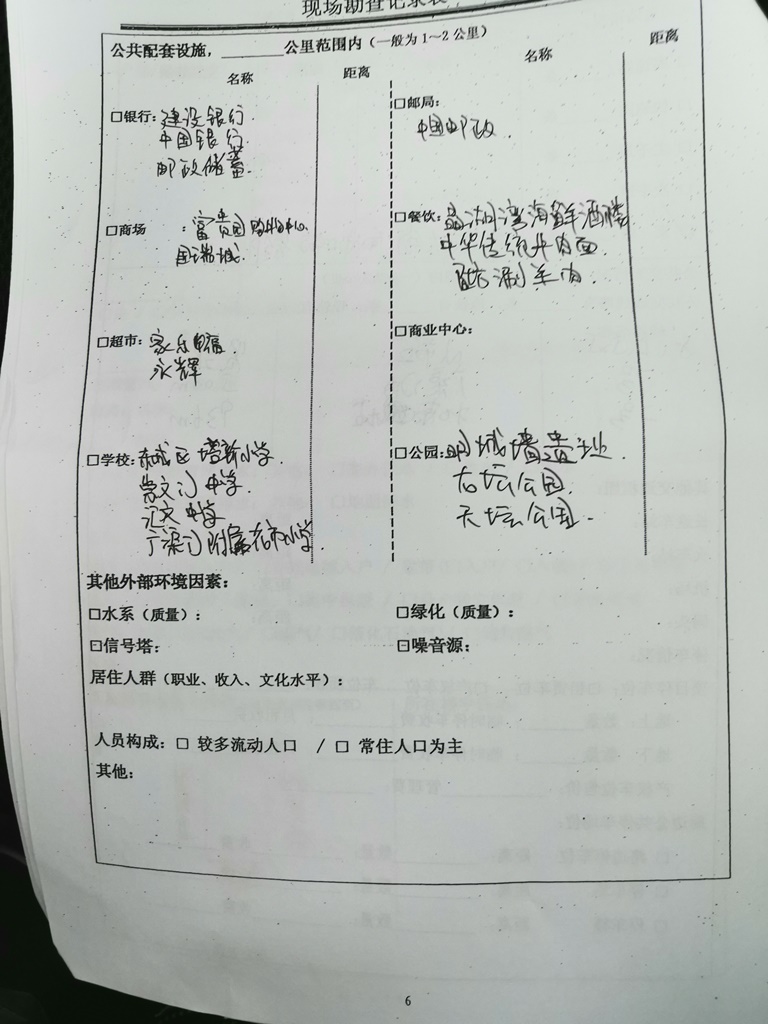 现场勘查记录表
公共配套设施，______公里范围内（一般为1～2公里）
名称 距离 名称 距离
□银行：建设银行.
中国银行
邮政储蓄.
□邮局：
中国邮政.
□商场 ：富贵园购物中心.
国瑞城.
□餐饮：晶湖湾海鲜酒楼
中华传统牛肉面.
涮羊肉.
□超市：家乐福.
永辉
□商业中心：
□学校：东城区 小学
崇文门中学.
汇文中学
广渠门附属花市小学.
□公园：明城墙遗址.
古坛公园.
天坛公园.
其他外部环境因素：
□水系（质量）：
□绿化（质量）：
□信号塔：
□噪音源：
居住人群（职业、收入、文化水平）：
人员构成：□ 较多流动人口 / □ 常住人口为主
其他：
6